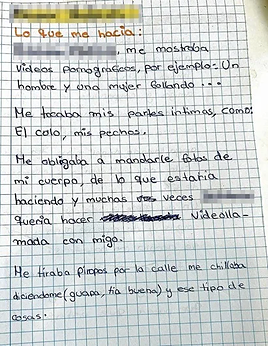 Lo que me hacia:
, me mostraba
Videos pornograficos, por ejemplo: Un
hombre y una mujer follando ...
Me tocaba mis partes intimas, como:
El colo, mis pechos.
Me obligaba a mandarle fotos de
mi cuerpo, de lo que estaria
haciendo y muchas veces
queria hacer Videolla-
mada con migo.
Me tiraba Piropos por la calle me chillaba
diciendome (guapa, tia buena) y ese tipo de
cosas.